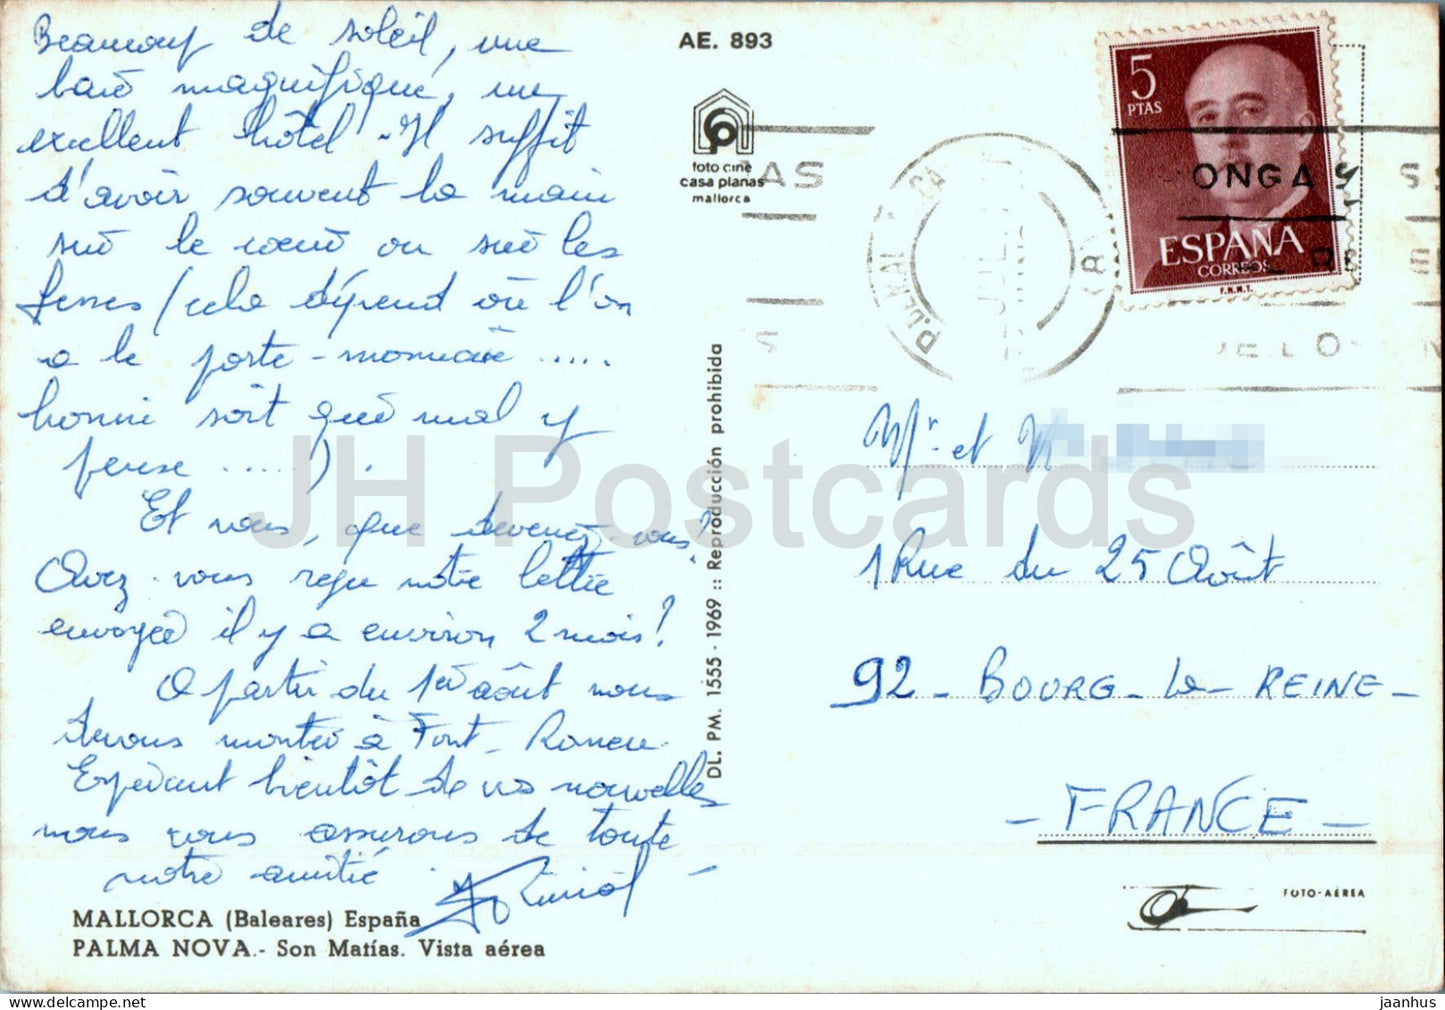 Beaucoup de soleil, une
baie magnifique, un
excellent hôtel - Il suffit
d'avoir souvent la main
sur le cœur ou sur les
fesses (cela dépend où l'on
a le porte-monnaie .....
honni soit qui mal y
pense .....).
Et vous, que devenez-vous?
Avez-vous reçu notre lettre
envoyée il y a environ 2 mois?
A partir du 1er août nous
devons monter à Font-Romeu.
Espérant bientôt de vos nouvelles
nous vous assurons de toute
notre amitié.
MALLORCA (Baleares) España
PALMA NOVA.- Son Matías. Vista aérea
AE. 893
foto cine
casa planas
mallorca
DL. PM. 1555 - 1969 :: Reproducción prohibida
5
PTAS
ESPAÑA
CORREOS
F.N.M.T.
ONGA
Mr et
1 Rue du 25 Août
92 - BOURG - La - REINE -
- FRANCE -
FOTO-AEREA
JH Postcards
jaanhus